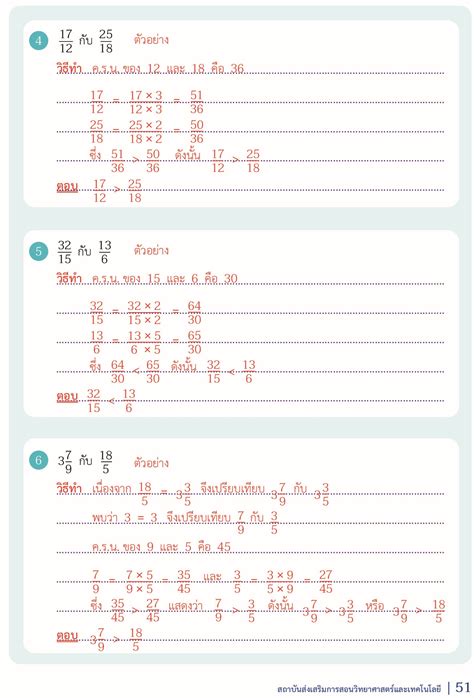 4 17/12 กับ 25/18 ตัวอย่าง
วิธีทำ ค.ร.น. ของ 12 และ 18 คือ 36
17/12 = 17 × 3/12 × 3 = 51/36
25/18 = 25 × 2/18 × 2 = 50/36
ซึ่ง 51/36 > 50/36 ดังนั้น 17/12 > 25/18
ตอบ 17/12 > 25/18
5 32/15 กับ 13/6 ตัวอย่าง
วิธีทำ ค.ร.น. ของ 15 และ 6 คือ 30
32/15 = 32 × 2/15 × 2 = 64/30
13/6 = 13 × 5/6 × 5 = 65/30
ซึ่ง 64/30 < 65/30 ดังนั้น 32/15 < 13/6
ตอบ 32/15 < 13/6
6 3 7/9 กับ 18/5 ตัวอย่าง
วิธีทำ เนื่องจาก 18/5 = 3 3/5 จึงเปรียบเทียบ 3 7/9 กับ 3 3/5
พบว่า 3 = 3 จึงเปรียบเทียบ 7/9 กับ 3/5
ค.ร.น. ของ 9 และ 5 คือ 45
7/9 = 7 × 5/9 × 5 = 35/45 และ 3/5 = 3 × 9/5 × 9 = 27/45
ซึ่ง 35/45 > 27/45 แสดงว่า 7/9 > 3/5 ดังนั้น 3 7/9 > 3 3/5 หรือ 3 7/9 > 18/5
ตอบ 3 7/9 > 18/5
สถาบันส่งเสริมการสอนวิทยาศาสตร์และเทคโนโลยี | 51